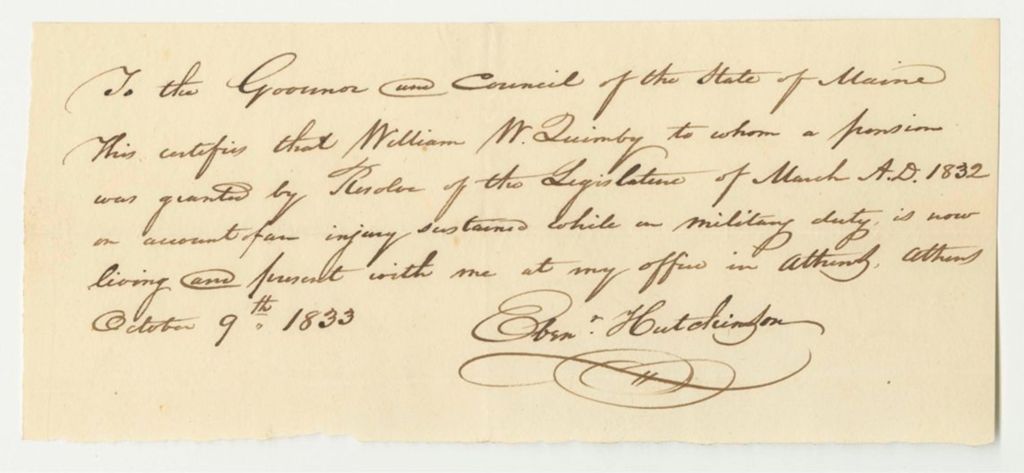 To the Governor and Council of the State of Maine
This certifies that William W. Quimby to whom a pension
was granted by Resolve of the Legislature of March A.D. 1832
on account of an injury sustained while on military duty, is now
living and present with me at my office in Athens, Athens
October 9th 1833
Ebenr Hutchinson